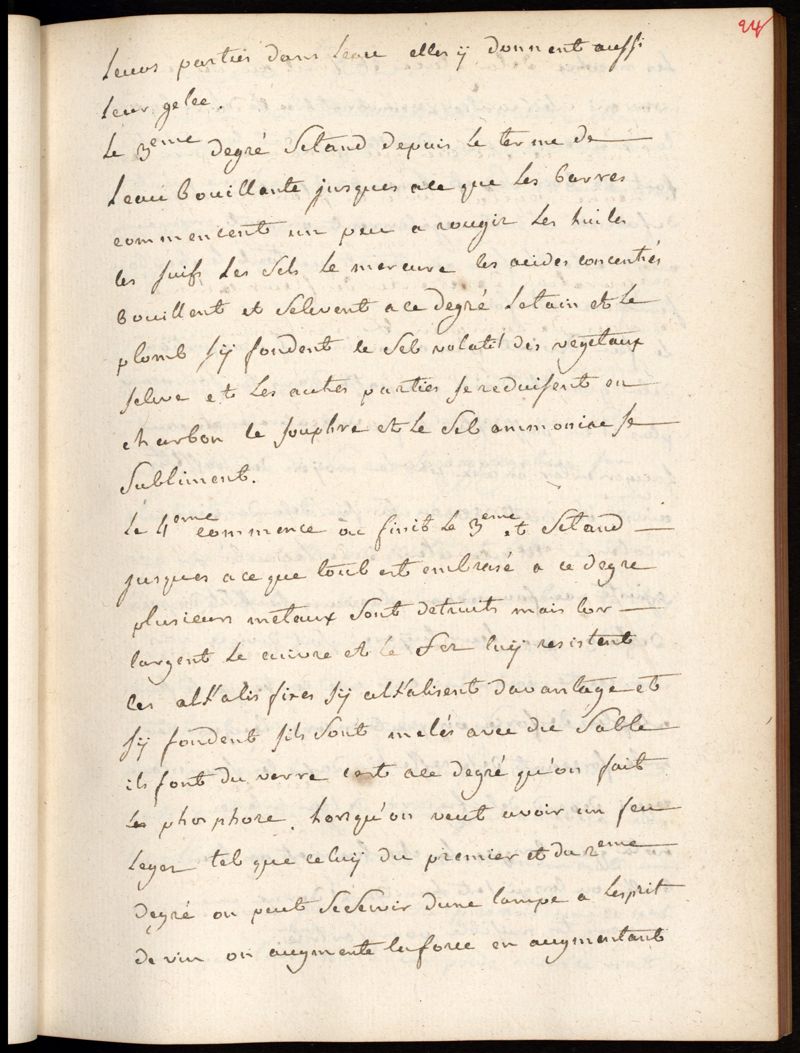 24
leurs parties dans leau elles ÿ donnent aussi
leur gelee.
Le 3eme degré Setand depuis le terme de
leau Bouillante jusques ace que les barres
commencent un peu a rougir Les huiles
les suifs Les Sels Le mercure les acides concentrés
Bouillent et Selevent ace degré Letain et Le
plomb sÿ fondent le Sel volatil des vegetaux
seleve et Les autres parties se reduisent en
charbon le souphre et Le Sel ammoniac se
Subliment.
Le 4eme commence où finit Le 3eme et Setand
jusques a ce que tout est embrasé a ce degre
plusieurs metaux Sont detruits mais lor
largent Le cuivre et le Fer luÿ resistent
les alkalis fixes sÿ alkalisent davantage et
sÿ fondent sils Sont melés avec du Sable
ils font du verre cest ace degré qu'on fait
Le phosphore. Lorsqu'on veut avoir un feu
Leger tel que celuÿ du premier et du 2eme
degré on peut Se Servir dune lampe a Lesprit
de vin on augmente la force en augmentant